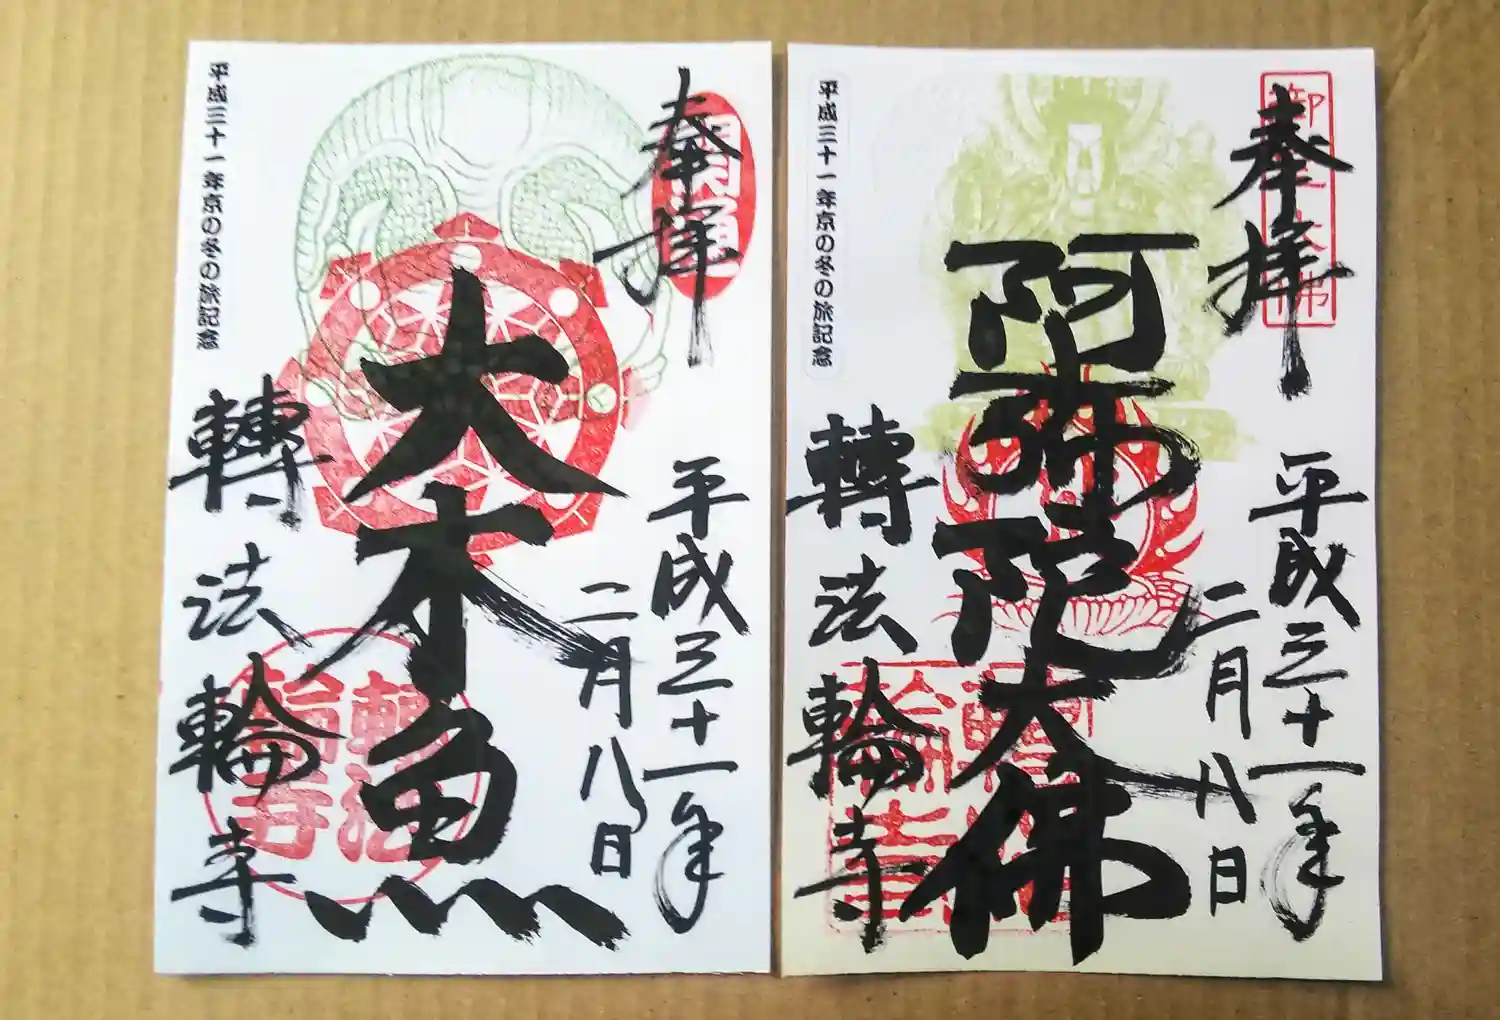 奉拝
開運
平成三十一年
二月八日
大木魚
轉法輪寺
轉法輪寺
平成三十一年京の冬の旅記念
奉拝
平成三十一年
二月八日
阿弥陀大佛
轉法輪寺
轉法輪寺
平成三十一年京の冬の旅記念